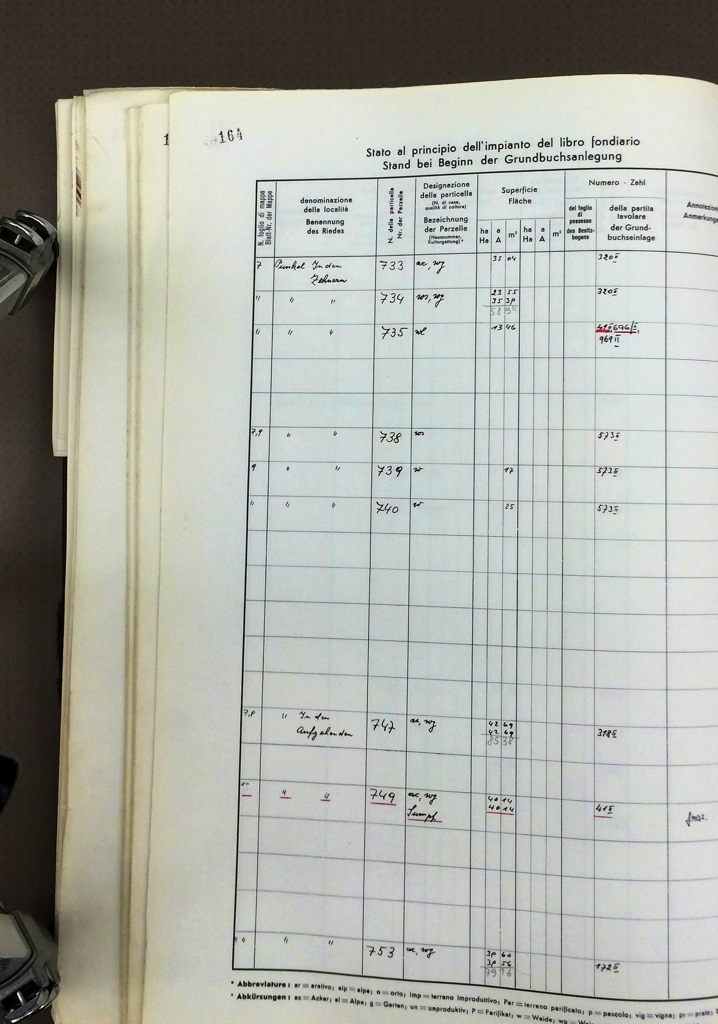 164
Stato al principio dell'impianto del libro fondiario
Stand bei Beginn der Grundbuchsanlegung
N. foglio di mappa
Blatt-Nr. der Mappe
denominazione
della località
Benennung
des Riedes
N. della particella
Nr. der Parzelle
Designazione
della particella
(N. di casa,
qualità di coltura)
Bezeichnung
der Parzelle
(Hausnummer,
Kulturgattung)*
Superficie
Fläche
ha a m² ha a m²
Ha A Ha A
Numero - Zahl
del foglio
di
possesso
des Besitz-
bogens
della partita
tavolare
der Grund-
buchseinlage
Annotazion
Anmerkung
7 In den 733 ac, wg 35 04 320 II
Zehnern
" " " 734 23 55 320 II
35 39
58 94
" " " 735 13 46 41 II, 676/II,
969 II
7,9 " " 738 573 II
9 " " 739 w 17 573 II
" " " 740 w 25 573 II
" In den 747 ac, wg 42 69 318 II
Aufgehenden 42 69
85 38
" " 749 ac, wg 40 14 41 II
Sumpf 40 14
" " 753 ac, wg 39 60 172 II
39 56
79 16
* Abbreviature: ar = arativo; alp = alpe; o = orto; imp = terreno improduttivo; Par = terreno parificato; p = pascolo; vig = vigna; pr = prato;
* Abkürzungen: ac = Acker; al = Alpe; g = Garten; un = unproduktiv; P = Parifikat; w = Weide;